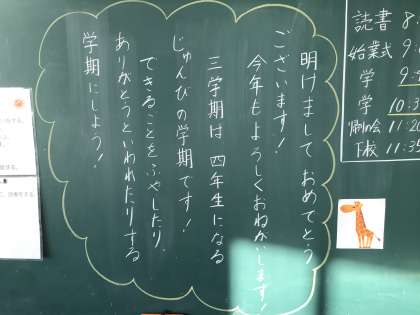 明けまして おめでとう
ございます!
今年もよろしくおねがいします!
三学期は 四年生になる
じゅんびの学期です!
できることをふやしたり、
ありがとうといわれたりする
学期にしよう!
読書 8:
始業式 9:
学 9:5
学 10:
帰りの会 11:20
下校 11:35